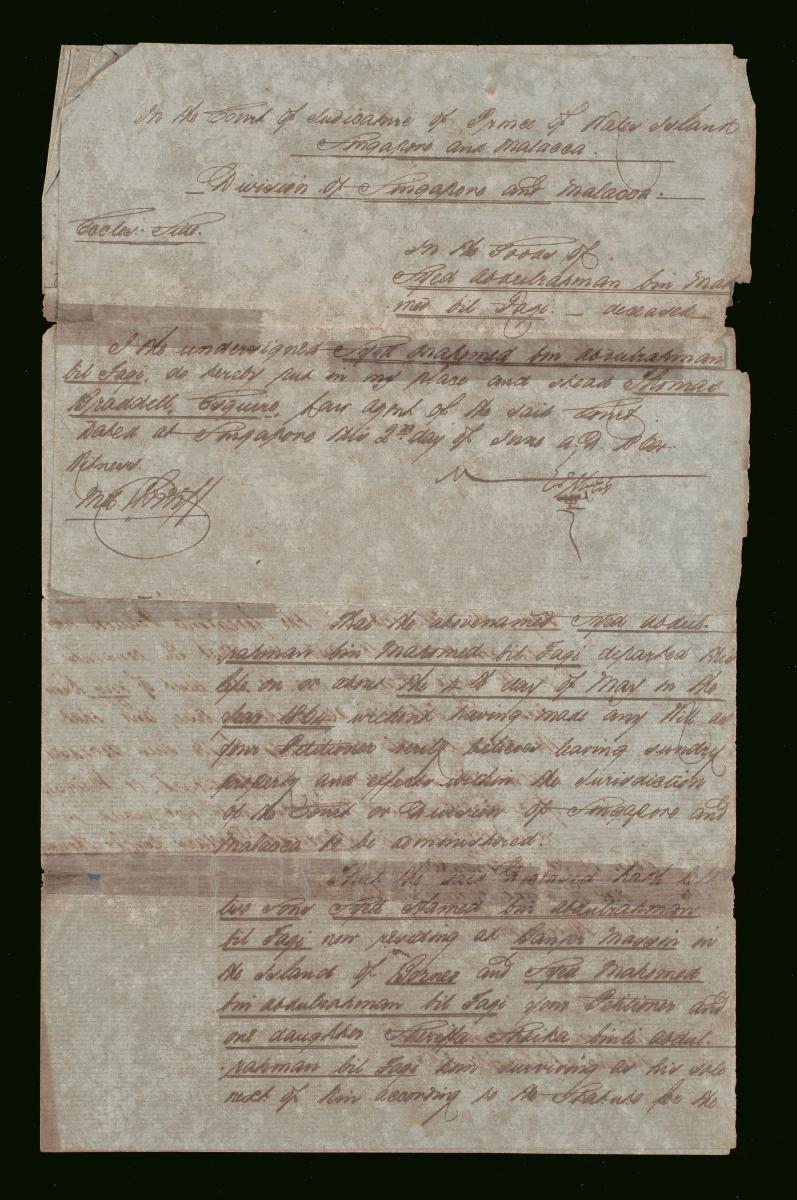 In the Court of Judicature of Prince of Wales Island
Singapore and Malacca.
Division of Singapore and Malacca.
Eccles: Side.
In the Goods of
Syed Abdulrahman bin Maho
med bil Fagi. — deceased —
I the undersigned Syed Mahomed bin Abdulrahman
bil Fagi, do hereby put in my place and stead Thomas
Braddell, Esquire, Law agent of the said Court.
Dated at Singapore this 2nd day of June A.D. 1864.
Witness.
That the abovenamed Syed Abdul-
rahman bin Mahomed bil Fagi departed this
life on or about the 4th day of May in the
year 1864. without having made any Will as
your Petitioner verily believes leaving sundry
property and effects within the Jurisdiction
of the Court or Division of Singapore and
Malacca to be administered.
That the said Deceased hath left
two sons Syed Hamed bin Abdulrahman
bil Fagi now residing at Banjer Massin in
the Island of Borneo and Syed Mahomed
bin Abdulrahman bil Fagi your Petitioner and
one daughter Sheriffa Shaika binti Abdul-
rahman bil Fagi him surviving as his sole
next of kin according to the Statute for the